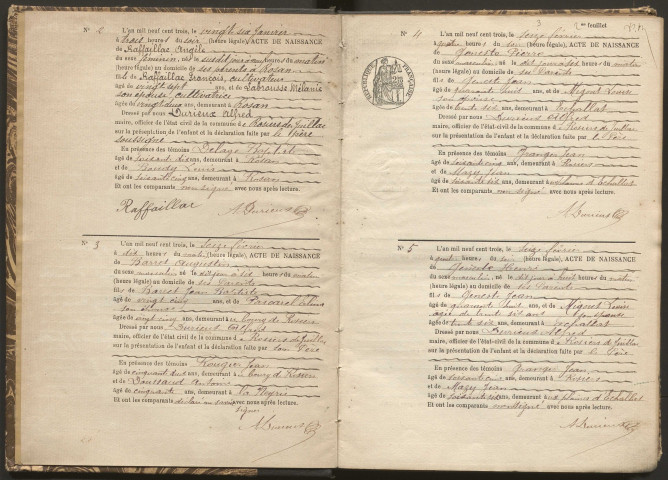 N° 2 L'an mil neuf cent trois, le vingt six Janvier
à trois heures du soir (heure légale), ACTE DE NAISSANCE
de Raffaillac Angèle
du sexe féminin, né le susdit jour à un heures du matin
(heure légale) au domicile de ses parents à Rosan
fil de Raffaillac François, cultivateur
âgé de vingt sept ans, et de Labrousse Mélanie
son épouse cultivatrice
âgée de vingt deux ans, demeurant à Rosan
Dressé par nous Burieux Alfred
maire, officier de l'état-civil de la commune de Rosiers de Juillac
sur la présentation de l'enfant et la déclaration faite par le père
soussigné
En présence des témoins Delage
âgé de soixante dix ans, demeurant à Rosan
et Louis
âgé de soixante cinq ans, demeurant à Rosan
Et ont les comparants non signé avec nous après lecture.
Raffaillac A. Burieux
N° 3 L'an mil neuf cent trois, le seize février
à dix heures du matin (heure légale), ACTE DE NAISSANCE
de Barret Augustin
du sexe masculin né le dit jour à six heures du matin
(heure légale) au domicile de ses Parents
fils de Barret Jean Baptiste
âgé de vingt cinq ans, et de
son épouse
âgée de vingt cinq ans, demeurant à au bourg de Rosiers
Dressé par nous Burieux Alfred
maire, officier de l'état-civil de la commune de Rosiers de Juillac
sur la présentation de l'enfant et la déclaration faite par son Père
En présence des témoins Rougier Jean
âgé de cinquante huit ans, demeurant à bourg de Rosiers
et Antoine
âgé de cinquante ans, demeurant à
Et ont les comparants avec nous après lecture.
signer
A. Burieux
3 2me feuillet
N° 4 L'an mil neuf cent trois, le seize février
à quatre heures du soir (heure légale), ACTE DE NAISSANCE
de Geneste Pierre
du sexe masculin, né le dit jour à six heures du matin
(heure légale) au domicile de ses Parents
fils de Geneste Jean
âgé de quarante huit ans, et de Mignot Louise
son épouse
âgée de trente six ans, demeurant à Echallat
Dressé par nous Burieux Alfred
maire, officier de l'état-civil de la commune de Rosiers de Juillac
sur la présentation de l'enfant et la déclaration faite par le Père
En présence des témoins Granger Jean
âgé de soixante cinq ans, demeurant à Rosiers
et Mazy Jean
âgé de soixante six ans, demeurant aux plaines d'Echallat
Et ont les comparants non signé avec nous après lecture.
A. Burieux
RÉPUBLIQUE FRANÇAISE
N° 5 L'an mil neuf cent trois, le seize février
à quatre heures du soir (heure légale), ACTE DE NAISSANCE
de Geneste
du sexe masculin, né le dit jour à huit heures du matin
(heure légale) au domicile de ses Parents
fils de Geneste Jean
âgé de quarante huit ans, et de Mignot Louise
âgée de trente six ans son épouse
âgée de trente six ans, demeurant à Echallat
Dressé par nous Burieux Alfred
maire, officier de l'état-civil de la commune de Rosiers de Juillac
sur la présentation de l'enfant et la déclaration faite par le Père
En présence des témoins Granger Jean
âgé de soixante cinq ans, demeurant à Rosiers
et Mazy Jean
âgé de soixante six ans, demeurant aux plaines d'Echallat
Et ont les comparants non signé avec nous après lecture.
A. Burieux